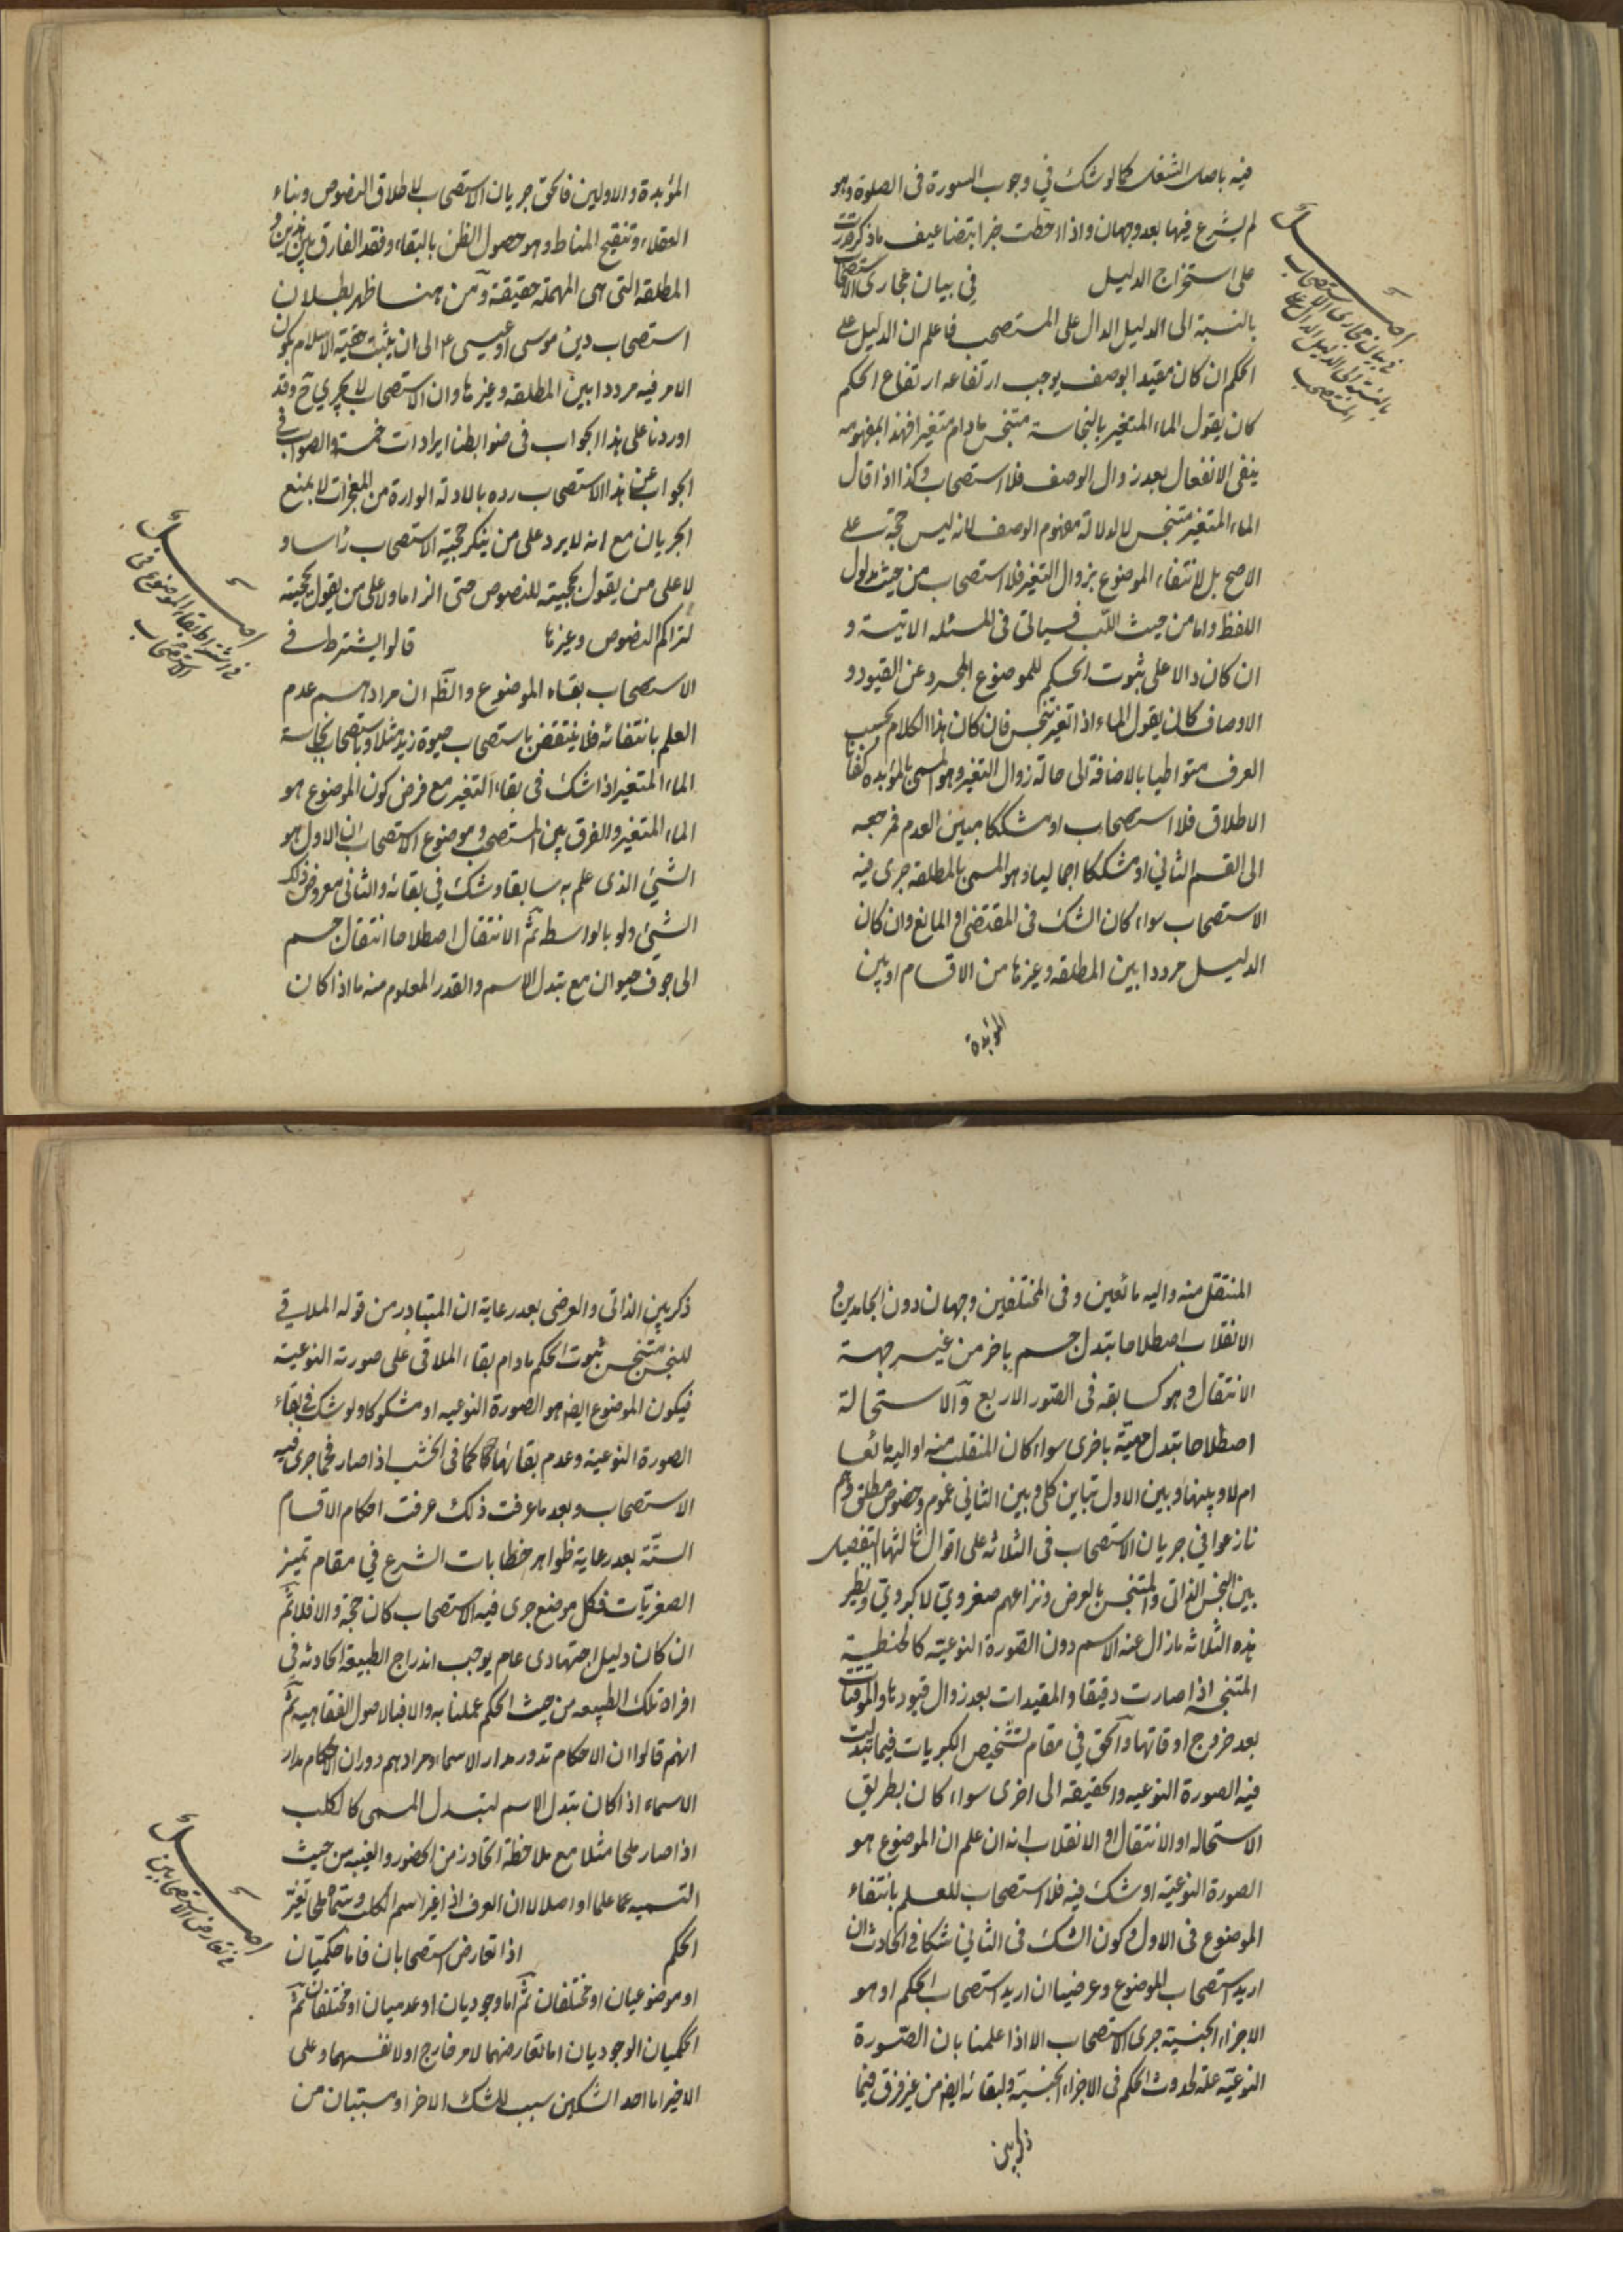 فيه باصل الشغل كما لو شك في وجوب السورة فى الصلوة وهو
لم يشرع فيها بعد وجهان واذا احطت خبرا بتضاعيف ما ذكر قدرت
على استخراج الدليل في بيان مجارى الاستصحاب
بالنسبة الى الدليل الدال على المستصحب فاعلم ان الدليل على
الحكم ان كان مقيدا بوصف يوجب ارتفاعه ارتفاع الحكم
كان يقول الماء المتغير بالنجاسة متنجس مادام متغيرا فهذا بمفهومه
ينفى الانفعال بعد زوال الوصف فلا استصحاب وكذا اذا قال
الماء المتغير متنجس لا لدلالة مفهوم الوصف لانه ليس حجة على
الاصح بل لانتفاء الموضوع بزوال التغير فلا استصحاب من حيث مدلول
اللفظ واما من حيث اللب فسياتى فى المسئله الاتية و
ان كان دالا على ثبوت الحكم للموضوع المجرد عن القيود و
الاوصاف كان يقول الماء اذا تغير تنجس فان كان هذا الكلام بحسب
العرف متواطيا بالاضافة الى حالة زوال التغير وهو المسمى بالمؤبده كفانا
الاطلاق فلا استصحاب او مشككا مبين العدم فمرجعه
الى القسم الثاني او مشككا اجماليا وهو المسمى بالمطلقة جرى فيه
الاستصحاب سواء كان الشك فى المقتضى او المانع وان كان
الدليل مرددا بين المطلقه وغيرها من الاقسام او بين
المؤبدة
اصل
في بيان مجارى الاستصحاب
بالنسبة الى الدليل الدال على
المستصحب
المؤبدة والاولين فالحق جريان الاستصحاب لاطلاق النصوص وبناء
العقلاء وتنقيح المناط وهو حصول الظن بالبقاء وفقد الفارق بين هذين و
المطلقه التى هى المهملة حقيقة ومن هنا ظهر بطلان
استصحاب دين موسى او عيسى ع الى ان يثبت حقية الاسلام بكون
الامر فيه مرددا بين المطلقه وغيرها وان الاستصحاب لا يجري ح وقد
اوردنا على هذا الجواب فى ضوابطنا ايرادات خمسة والصواب في
الجواب عن هذا الاستصحاب رده بالادلة الواردة من المعجزات لا بمنع
الجريان مع انه لا يرد على من ينكر حجية الاستصحاب رأسا و
لا على من يقول بحجيته للنصوص حتى الزاما ولا على من يقول بحجيته
لتراكم النصوص وغيرها قالوا يشترط في
الاستصحاب بقاء الموضوع والظ ان مرادهم عدم
العلم بانتفائه فلا ينتقض باستصحاب حيوة زيد مثلا وباستصحاب نجاسة
الماء المتغير اذا شك فى بقاء التغير مع فرض كون الموضوع هو
الماء المتغير والفرق بين المستصحب وموضوع الاستصحاب ان الاول هو
الشيئ الذى علم به سابقا وشك في بقائه والثانى معروض ذلك
الشيئ ولو بالواسطه ثم الانتقال اصطلاحا انتقال جسم
الى جوف حيوان مع تبدل الاسم والقدر المعلوم منه ما اذا كان
اصل
في اشتراط بقاء الموضوع فى
الاستصحاب
المنتقل منه واليه مائعين وفى المختلفين وجهان دون الجامدين و
الانقلاب اصطلاحا تبدل جسم باخر من غير جهة
الانتقال وهو كسابقه فى الصور الاربع والاستحالة
اصطلاحا تبدل حقيقة باخرى سواء كان المنقلب منه او اليه مائعا
ام لا وبينها وبين الاول تباين كلى وبين الثاني عموم وخصوص مطلق وهم
نازعوا في جريان الاستصحاب فى الثلاثه على اقوال ثالثها التفصيل
بين النجس الذاتى والمتنجس بالعرض ونزاعهم صغروي لا كبروي ونظير
هذه الثلاثه ما زال عنه الاسم دون الصورة النوعية كالحنطة
المتنجسة اذا صارت دقيقا والمقيدات بعد زوال قيودها والموقتات
بعد خروج اوقاتها والحق في مقام تشخيص الكبريات فيما تبدلت
فيه الصورة النوعيه والحقيقه الى اخرى سواء كان بطريق
الاستحاله او الانتقال او الانقلاب انه ان علم ان الموضوع هو
الصورة النوعية او شك فيه فلا استصحاب للعلم بانتفاء
الموضوع فى الاول وكون الشك فى الثاني شكا فى الحادث ان
اريد استصحاب الموضوع وعرضيا ان اريد استصحاب الحكم او هو
الاجزاء الجنسية جرى الاستصحاب الا اذا علمنا بان الصورة
النوعية علة لحدوث الحكم فى الاجزاء الجنسية ولبقائه ايضا من غير فرق فيما
ذكر بين
ذكر بين الذاتى والعرضى بعد رعاية ان المتبادر من قوله الملاقي
للنجس متنجس ثبوت الحكم مادام بقاء الملاقى على صورته النوعية
فيكون الموضوع ايضا هو الصورة النوعيه او مشكوكا ولو شك فى بقاء
الصورة النوعية وعدم بقائها كما فى الخشب اذا صار فحما جرى فيه
الاستصحاب وبعد ما عرفت ذلك عرفت احكام الاقسام
الستة بعد رعاية ظواهر خطابات الشرع في مقام تميز
الصغريات فكل موضع جرى فيه الاستصحاب كان حجة والا فلا ثم
ان كان دليل اجتهادى عام يوجب اندراج الطبيعة الحادثه في
افراد تلك الطبيعه من حيث الحكم عملنا به والا فبالاصول الفقاهيه ثم
انهم قالوا ان الاحكام تدور مدار الاسماء ومرادهم دوران الاحكام مدار
الاسماء اذا كان تبدل الاسم لتبدل المسمى كالكلب
اذا صار ملحا مثلا مع ملاحظة اتحاد زمن الحضور والغيبه من حيث
التسميه علما او اصلا لان العرف اذا غير اسم الكلب وسماه ملحا تغير
الحكم اذا تعارض استصحابان فاما حكميان
او موضوعيان او مختلفان ثم اما وجوديان او عدميان او مختلفان ثم
الحكميان الوجوديان اما تعارضهما لامر خارج او لانفسهما وعلى
الاخير اما احد الشكين سبب للشك الاخر او مسببان من
اصل
في تعارض الاستصحابين